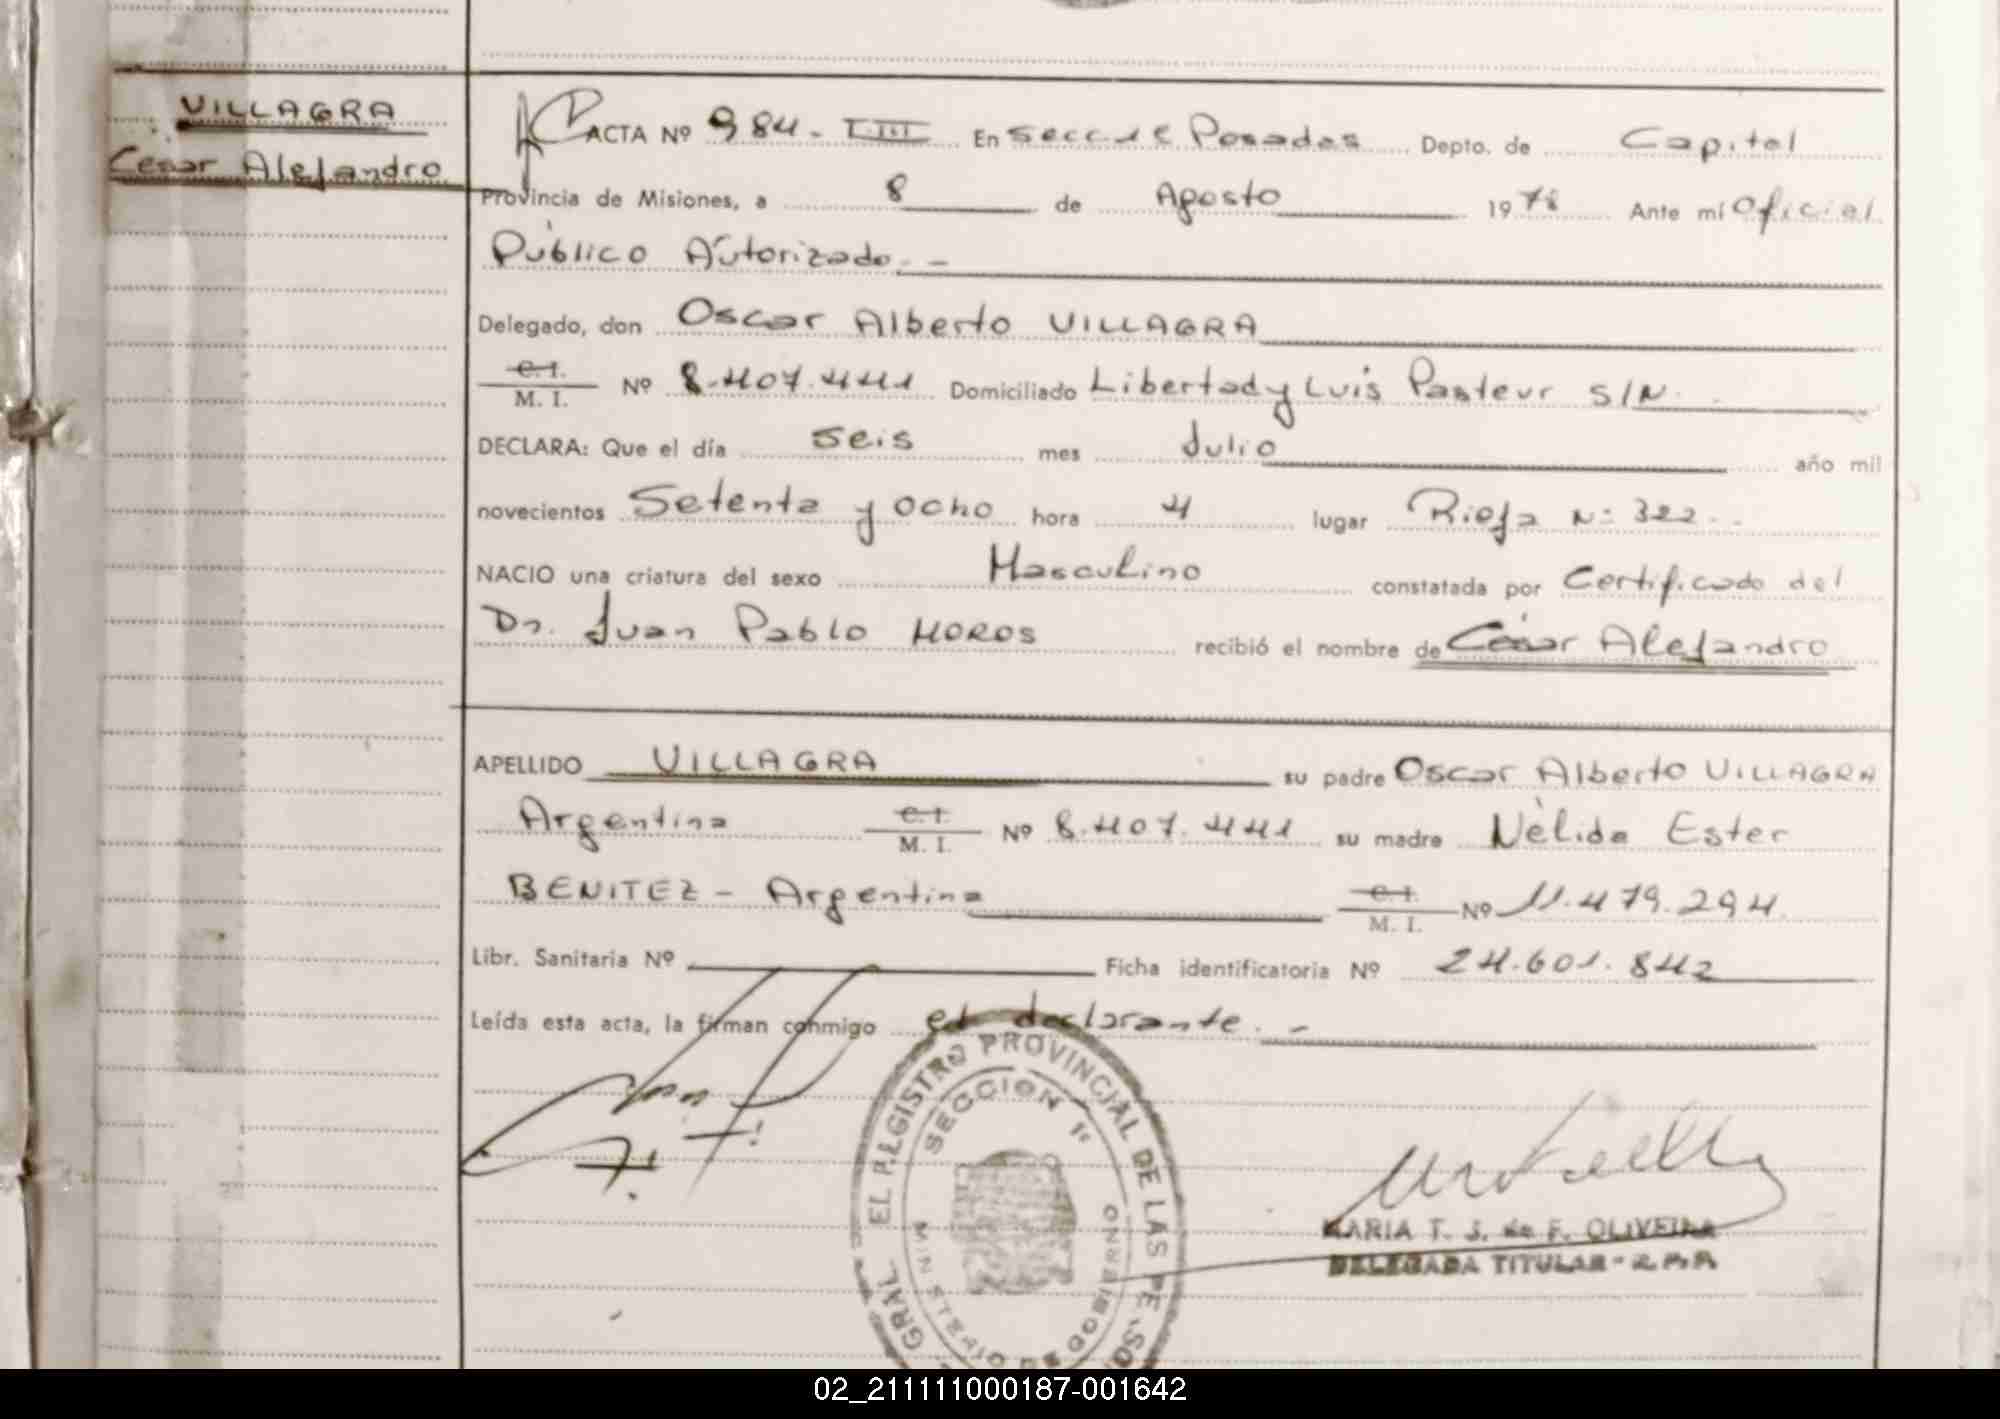 VILLAGRA
César Alejandro
ACTA Nº 984.- T.III En Posadas Depto. de Capital
Provincia de Misiones, a 8 de Agosto 1978 Ante mí Oficial
Público Autorizado.-
Delegado, don Oscar Alberto VILLAGRA
C.I.
M. I. Nº 8.407.441 Domiciliado Libertad y Luis Pasteur S/N.
DECLARA: Que el día seis mes Julio año mil
novecientos Setenta y ocho hora 4 lugar Rioja Nº 322.
NACIO una criatura del sexo Masculino constatada por Certificado del
Dr. Juan Pablo recibió el nombre de César Alejandro
APELLIDO VILLAGRA su padre Oscar Alberto VILLAGRA
Argentina C.I.
M. I. Nº 8.407.441 su madre Nélida Ester
BENITEZ - Argentina C.I.
M. I. Nº 11.479.294
Libr. Sanitaria Nº Ficha identificatoria Nº 24.601.842
Leída esta acta, la firman conmigo el declarante.-
GRAL. EL REGISTRO PROVINCIAL DE LAS PERSO
SECCION 1ª
MINISTERIO DE GOBIERNO
MARIA T. S. de F. OLIVEIRA
DELEGADA TITULAR - R.P.P.
02_211111000187-001642